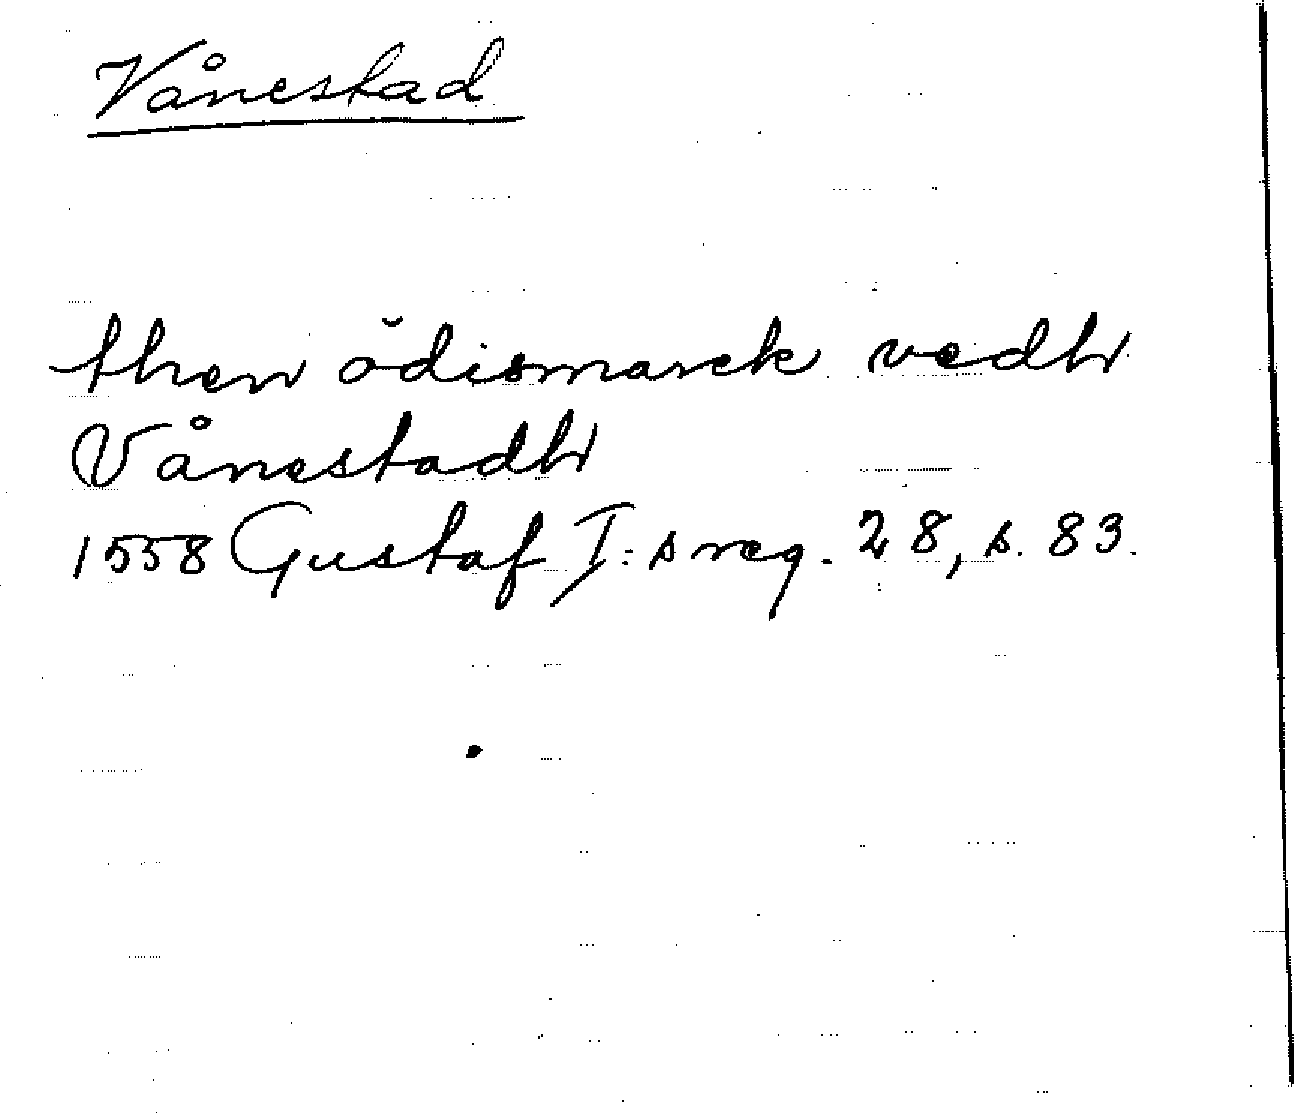 Vånestad
then ödismarck vedh
Vånestadh
1558 Gustaf I:s reg. 28, s. 83.